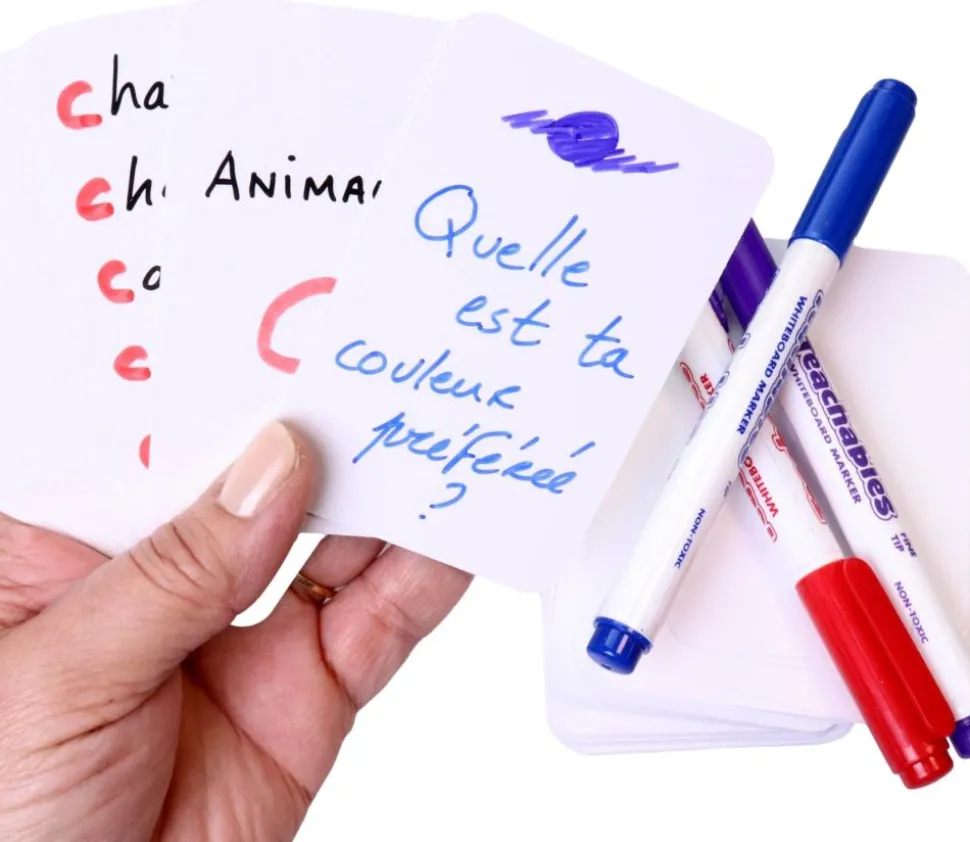 cha
ch
co
c
ANIMA
C
Quelle
est ta
couleur
préférée
?
WHITEBOARD MARKER
NON-TOXIC
WHITEBO
Teachables
WHITEBOARD MARKER
FINE
TIP
NON-TOXIC